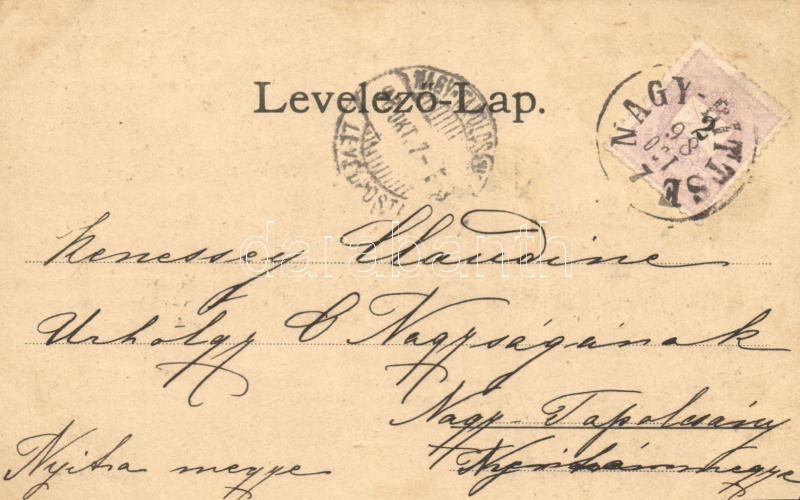 Levelező-Lap.
NAGY-BITTSE
2
98
OKT. 7
darabanth
Kenessey Claudine
Urhölgy Ő Nagyságának
Nagy-Tapolcsány
Nyitra megye